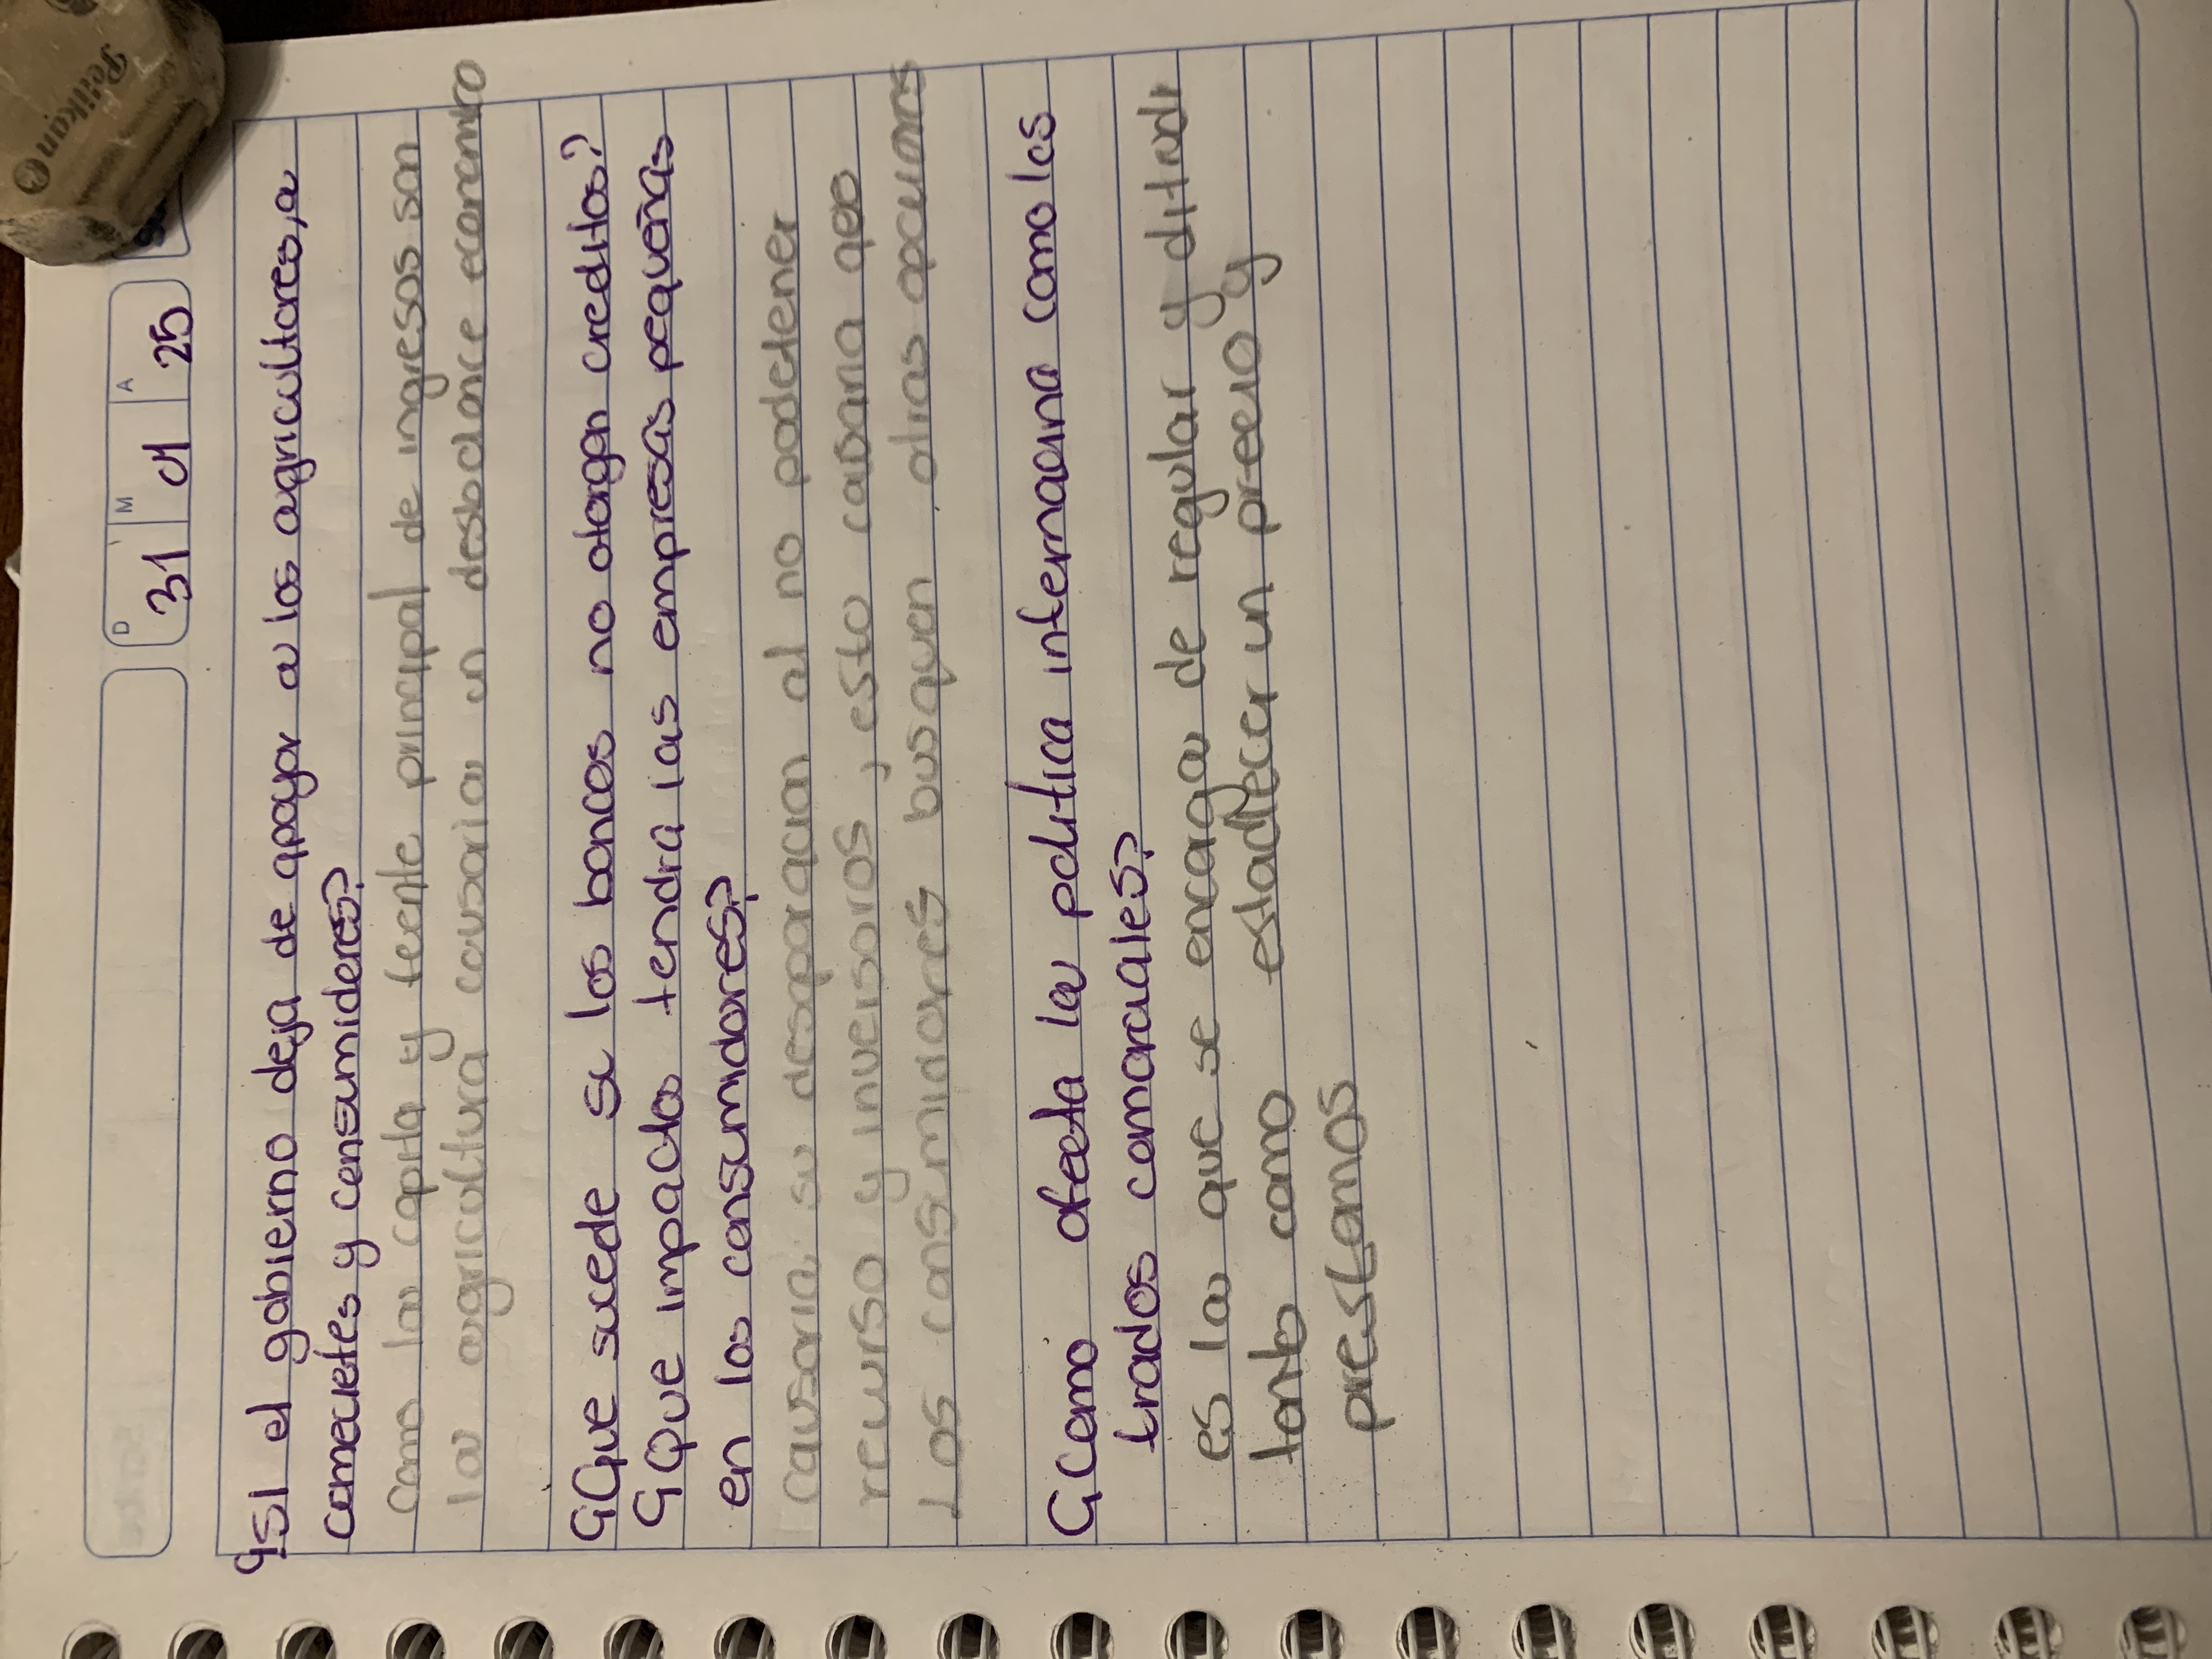 Pelikan
D M A
31 01 25
¿Si el gobierno deja de apoyar a los agricultores, a
comecietes y consumideres?
Como la capita y feente principal de ingresos son
la agricoltura causaria un desbalance economico
¿Que sucede si los bancos no otorgan creditos?
¿Que impacto tendra las empresas pequeñas
en los consumidores?
causaria su desparacion al no podetener
recurso y inversoros, esto causaria qeo
Los consimidores busquen otras opciones
¿Como afecta la politica internaciona como los
trados comerciales?
es la que se encarga de regular y
tanto como estadlecer un precio y
prestamos